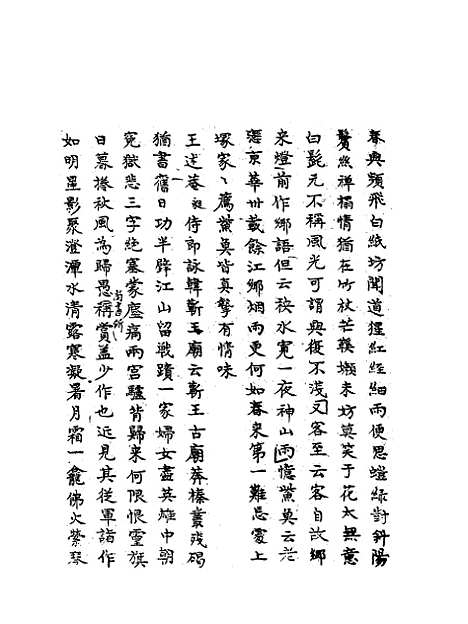 春興頻飛白紙坊聞道猩紅經細雨便思螘綠對斜陽
鬢絲禪榻情猶在竹杖芒鞵嬾未妨莫笑于花太無意
白髭元不稱風光可謂興復不淺又客至云客自故鄉
來燈前作鄉語但云秧水寬一夜神山雨憶黨莫云老
溷京華卅載餘江鄉烟雨更何如春來第一難忘處上
塚家〻薦黨莫皆真摯有情味
王述菴侍郎詠韓蘄王廟云蘄王古廟莽榛叢殘碣
猶書舊日功半壁江山留戰蹟一家婦女盡英雄中朝
冤獄悲三字絕塞蒙塵痛兩宮驢背歸來何限恨靈旗
日暮捲秋風為歸愚尚書所稱賞蓋少作也近見其從軍詣作
如明星影聚澄潭水清露寒凝暑月霜一龕佛火縈琴